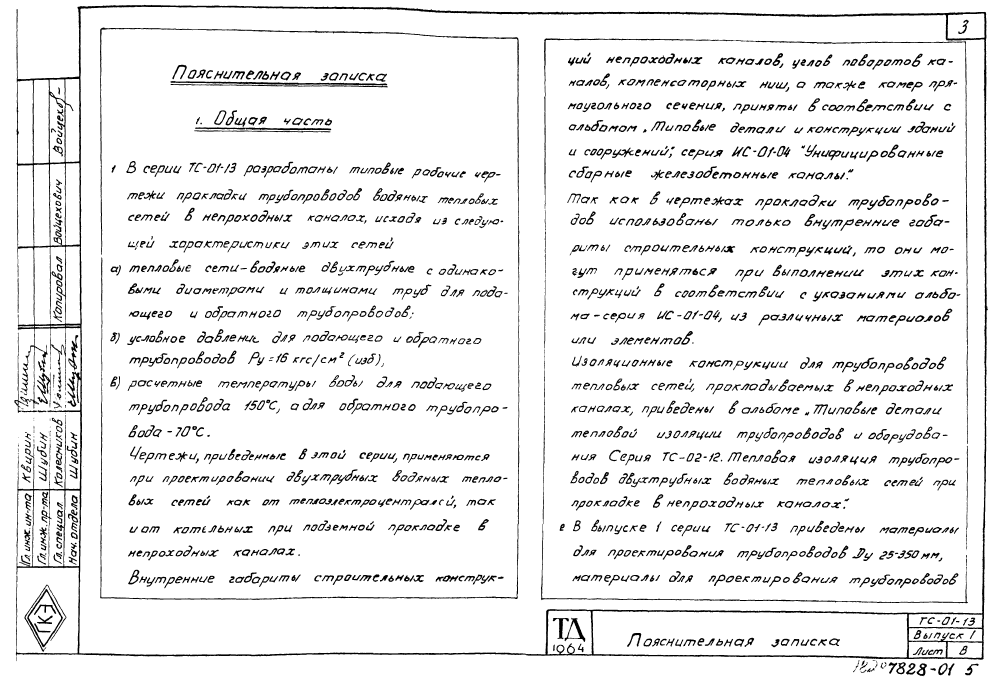 3
Пояснительная записка
1. Общая часть
1 В серии ТС-01-13 разработаны типовые рабочие чер-
тежи прокладки трубопроводов водяных тепловых
сетей в непроходных каналах, исходя из следую-
щей характеристики этих сетей
а) тепловые сети-водяные двухтрубные с одинако-
выми диаметрами и толщинами труб для пода-
ющего и обратного трубопроводов;
б) условное давление для подающего и обратного
трубопроводов Ру=16 кгс/см² (изб),
в) расчетные температуры воды для подающего
трубопровода 150°С, а для обратного трубопро-
вода - 70°С.
Чертежи, приведенные в этой серии, применяются
при проектировании двухтрубных водяных тепло-
вых сетей как от теплоэлектроцентралей, так
и от котельных при подземной прокладке в
непроходных каналах.
Внутренние габариты строительных конструк-
ций непроходных каналов, углов поворотов ка-
налов, компенсаторных ниш, а также камер пря-
моугольного сечения, приняты в соответствии с
альбомом „Типовые детали и конструкции зданий
и сооружений", серия ИС-01-04 "Унифицированные
сборные железобетонные каналы."
Так как в чертежах прокладки трубопрово-
дов использованы только внутренние габа-
риты строительных конструкций, то они мо-
гут применяться при выполнении этих кон-
струкций в соответствии с указаниями альбо-
ма-серия ИС-01-04, из различных материалов
или элементов.
Изоляционные конструкции для трубопроводов
тепловых сетей, прокладываемых в непроходных
каналах, приведены в альбоме „Типовые детали
тепловой изоляции трубопроводов и оборудова-
ния Серия ТС-02-12. Тепловая изоляция трубопро-
водов двухтрубных водяных тепловых сетей при
прокладке в непроходных каналах".
2 В выпуске 1 серии ТС-01-13 приведены материалы
для проектирования трубопроводов Ду 25-350 мм,
материалы для проектирования трубопроводов
Гл.инж.ин-та Квирин
Гл.инж.пр-та Шубин
Гл.специал Колесников
Нач.отдела Шубин
Копировал Войцехович
ГКЭ
ТД
1964
Пояснительная записка
ТС-01-13
Выпуск 1
Лист В
7828-01 5